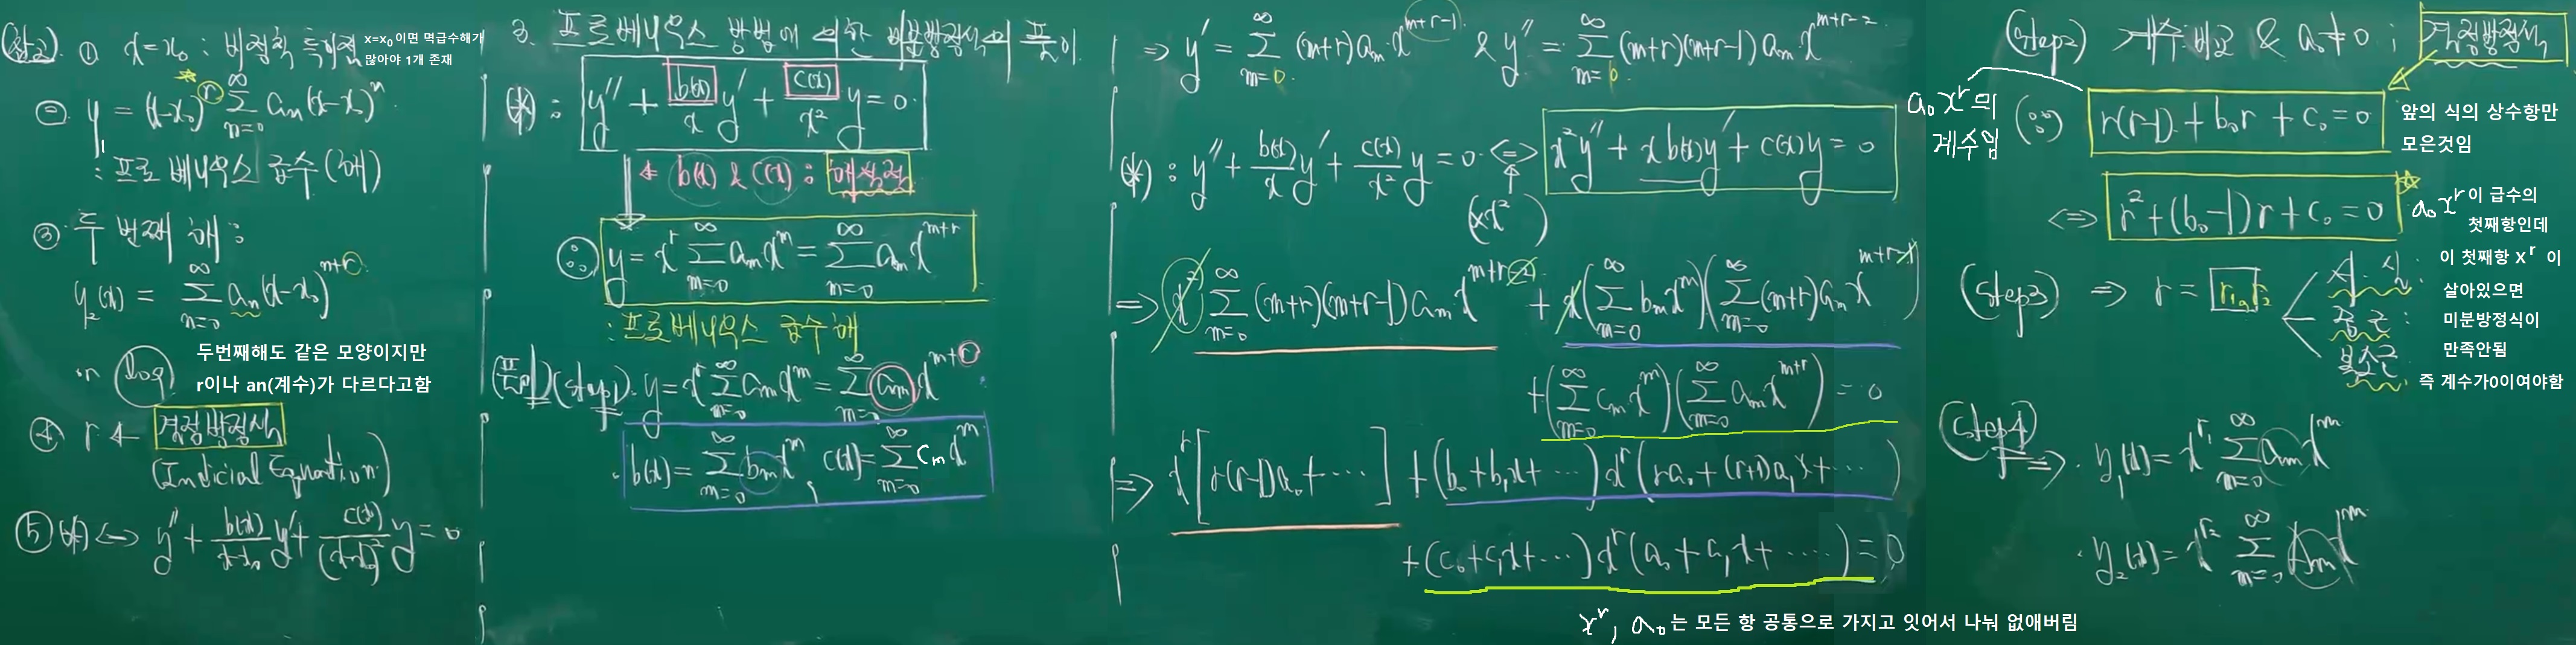 (참고) ① x=x₀ : 비정칙 특이점
x=x₀이면 멱급수해가
많아야 1개 존재
② y = (x-x₀)^r ∑_{n=0}^{∞} aₙ(x-x₀)^n.
: 프로베니우스 급수(해)
③ 두 번째 해 :
y₂(x) = ∑_{n=0}^{∞} aₙ(x-x₀)^{n+r}
log
두번째해도 같은 모양이지만
r이나 an(계수)가 다르다고함
④ r ← 결정방정식
(Indicial Equation)
⑤ (*) <=> y'' + b(x)/(x-x₀) y' + c(x)/(x-x₀)² y = 0
3. 프로베니우스 방법에 의한 미분방정식의 풀이
(*) : y'' + b(x)/x y' + c(x)/x² y = 0.
← b(x) & c(x) : 해석적
∴ y = x^r ∑_{m=0}^{∞} aₘx^m = ∑_{m=0}^{∞} aₘx^{m+r}
: 프로베니우스 급수해
(풀이) (step1). y = x^r ∑_{m=0}^{∞} aₘx^m = ∑_{m=0}^{∞} aₘx^{m+r}
b(x) = ∑_{m=0}^{∞} bₘx^m, c(x) = ∑_{m=0}^{∞} cₘx^m
=> y' = ∑_{m=0}^{∞} (m+r)aₘx^{m+r-1} & y'' = ∑_{m=0}^{∞} (m+r)(m+r-1)aₘx^{m+r-2}
(*) : y'' + b(x)/x y' + c(x)/x² y = 0. <=> x²y'' + xb(x)y' + c(x)y = 0
(×x²)
=> x² ∑_{m=0}^{∞} (m+r)(m+r-1)aₘx^{m+r-2} + x(∑_{m=0}^{∞} bₘx^m)(∑_{m=0}^{∞} (m+r)aₘx^{m+r-1})
+(∑_{m=0}^{∞} cₘx^m)(∑_{m=0}^{∞} aₘx^{m+r}) = 0
=> x^r[r(r-1)a₀+⋯] + (b₀+b₁x+⋯)x^r(ra₀+(r+1)a₁x+⋯)
+(c₀+c₁x+⋯)x^r(a₀+a₁x+⋯) = 0
x^r, a₀는 모든 항 공통으로 가지고 잇어서 나눠 없애버림
(step2) 계수비교 & a₀≠0 ; 결정방정식
a₀x^r의
계수임
(∴) r(r-1) + b₀r + c₀ = 0
앞의 식의 상수항만
모은것임
<=> r² + (b₀-1)r + c₀ = 0
a₀x^r이 급수의
첫째항인데
이 첫째항 x^r 이
살아있으면
미분방정식이
만족안됨
즉 계수가0이여야함
(step3) => r = r₁, r₂
서·실 :
중근 :
복소근
(step4) => y₁(x) = x^{r₁} ∑_{m=0}^{∞} aₘx^m
y₂(x) = x^{r₂} ∑_{m=0}^{∞} Aₘx^m